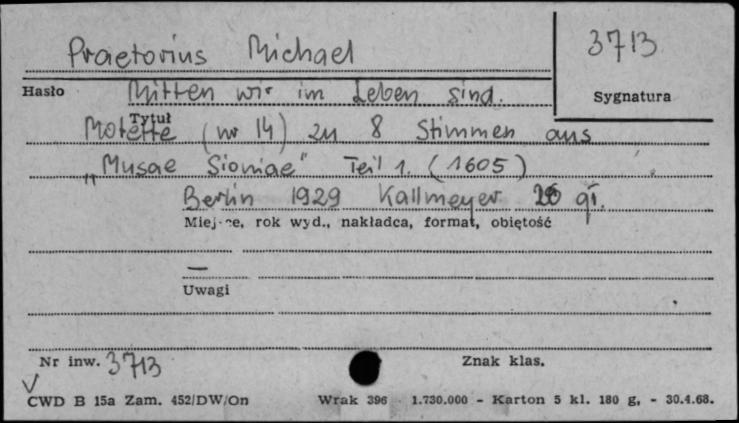 Praetorius Michael
3713
Hasło Mitten wir im Leben sind.
Sygnatura
Tytuł
Motette (nr 14) zu 8 Stimmen aus
"Musae Sioniae" Teil 1. (1605)
Berlin 1929 Kallmeyer
Miejsce, rok wyd., nakładca, format, objętość
—
Uwagi
Nr inw. 3713
Znak klas.
CWD B 15a Zam. 452/DW/On Wrak 396 1.730.000 - Karton 5 kl. 180 g. - 30.4.68.